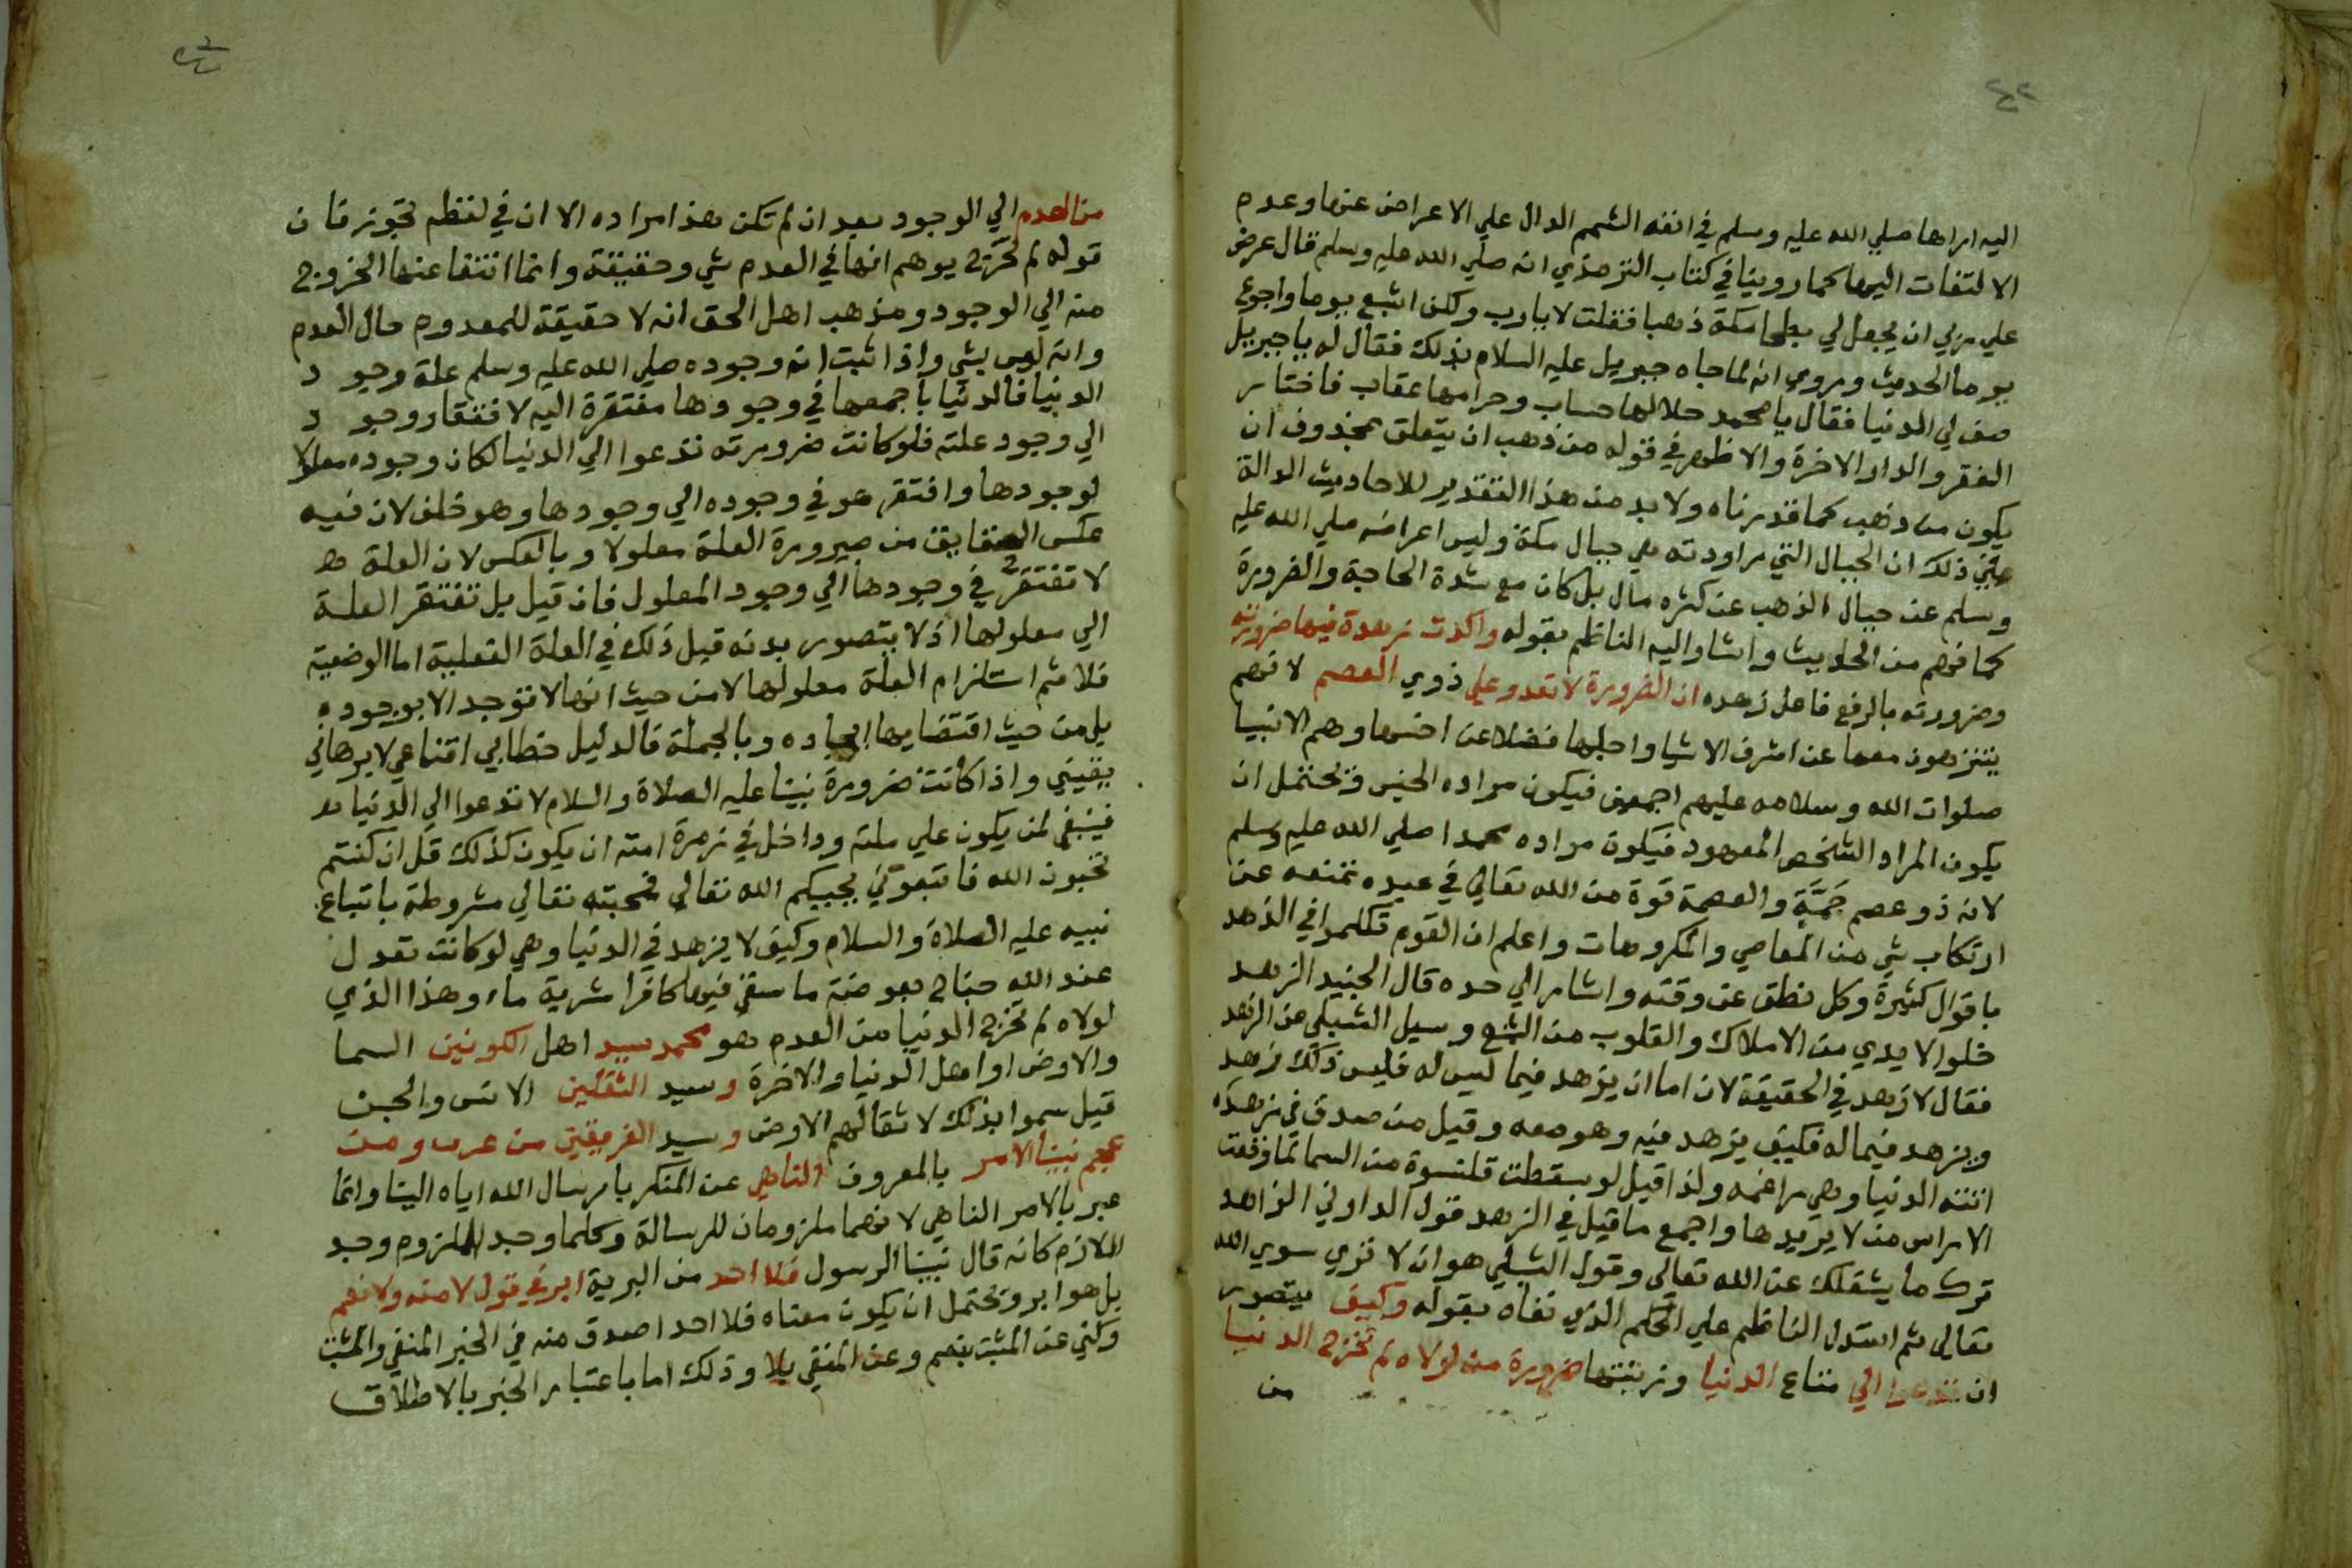 ٤٢
اليه اراها صلي الله عليه وسلم في انفه الشمم الدال علي الاعراض عنها وعدم
الالتفات اليها كما روينا في كتاب الترمذي انه صلي الله عليه وسلم قال عرض
علي ربي ان يجعل لي بطحا مكة ذهبا فقلت لا يارب ولكن اشبع يوما واجوع
يوما الحديث وروي انه لما جاه جبريل عليه السلام بذلك فقال له يا جبريل
صف لي الدنيا فقال يا محمد حلالها حساب وحرامها عقاب فاختار
الفقر والدار الاخرة والاظهر في قوله من ذهب ان يتعلق بمحذوف ان
يكون من ذهب كما قدرناه ولا بد من هذا التقدير للاحاديث الدالة
علي ذلك ان الجبال التي راودته هي جبال مكة وليس اعراضه صلي الله عليه
وسلم عن جبال الذهب عن كثره مال بل كان مع شدة الحاجة والضرورة
كما فهم من الحديث واشار اليه الناظم بقوله واكدت زهده فيها ضرورته
وضرورته بالرفع فاعل زهده ان الضرورة لا تعدو علي ذوي العصم لانهم
يتنزهون معها عن اشرف الاشيا واجلها فضلا عن اخسها وهم الانبيا
صلوات الله وسلامه عليهم اجمعين فيكون مراده الجنس ويحتمل ان
يكون المراد الشخص المعهود فيكون مراده محمدا صلي الله عليه وسلم
لانه ذو عصم جَمَّةٍ والعصمة قوة من الله تعالي في عبده تمنعه عن
ارتكاب شي من المعاصي والمكروهات واعلم ان القوم تكلموا في الزهد
باقوال كثيرة وكل نطق عن وقته واشار الي حده قال الجنيد الزهد
خلو الايدي من الاملاك والقلوب من التتبع وسيل الشبلي عن الزهد
فقال لا زهد في الحقيقة لان اما ان يزهد فيما ليس له فليس ذلك زهد
ويزهد فيما له فكيف يزهد فيه وهو معه وقيل من صدق في زهده
اتته الدنيا وهي راغمه ولذا قيل لو سقطت قلنسوة من السما لما وقعت
الا براس من لا يريدها واجمع ما قيل في الزهد قول الداراني الزاهد
ترك ما يشغلك عن الله تعالي وقول الشبلي هو ان لا تري سوي الله
تعالي ثم استدل الناظم علي الحكم الذي نفاه بقوله وكيف يتصور
ان تدعوا الي متاع الدنيا وزينتها ضرورة من لولاه لم تخرج الدنيا
من
من العدم الي الوجود بعد ان لم تكن هذا مراده الا ان في لفظه تجوز فان
قوله لم تخرج يوهم انها في العدم شي وحقيقة وانما انتفا عنها الخروج
منه الي الوجود ومذهب اهل الحق انه لا حقيقة للمعدوم حال العدم
وانه ليس بشي واذا ثبت ان وجوده صلي الله عليه وسلم علة وجود
الدنيا فالدنيا باجمعها في وجودها مفتقرة اليه لافتقار وجود
الي وجود علته فلو كانت ضرورته تدعوا الي الدنيا لكان وجوده معلولا
لوجودها وافتقر هو في وجوده الي وجودها وهو خلف لان فيه
عكس الحقايق من صيرورة العلة معلولا وبالعكس لان العلة
لا تفتقر في وجودها الي وجود المعلول فان قيل بل تفتقر العلة
الي معلولها اذ لا يتصور بدنه قيل ذلك في العلة العقلية اما الوضعية
فلا ثم استلزام العلة معلولها لا من حيث انها لا توجد الا بوجوده
بل من حيث اقتضايها ايجاده وبالجملة فالدليل خطابي اقناعي لا برهاني
يقيني واذا كانت ضرورة نبينا عليه الصلاة والسلام لا تدعوا الي الدنيا
فينبغي لمن يكون علي ملته وداخل في زمرة امته ان يكون كذلك قل ان كنتم
تحبون الله فاتبعوني يحببكم الله تعالي فمحبته تعالي مشروطة باتباع
نبيه عليه الصلاة والسلام وكيف لا يزهد في الدنيا وهي لو كانت تعدل
عند الله جناح بعوضة ما سقي فيها كافرا شربة ماء وهذا الذي
لولاه لم تخرج الدنيا من العدم هو محمد سيد اهل الكونين السما
والارض او اهل الدنيا والاخرة وسيد الثقلين الانس والجن
قيل سموا بذلك لاثقالهم الارض وسيد الفريقين من عرب ومن
عجم نبينا الامر بالمعروف الناهي عن المنكر بارسال الله اياه الينا وانما
عبر بالامر الناهي لانهما ملزومان للرسالة وكلما وجد الملزوم وجد
اللازم كانه قال نبينا الرسول فلا احد من البرية ابر في قول لا منه ولا نعم
بل هو ابر ويحتمل ان يكون معناه فلا احد اصدق منه في الخبر المنفي والمثبت
وكني عن المثبت بنعم وعن المنفي بلا وذلك اما باعتبار الخبر بالاطلاق